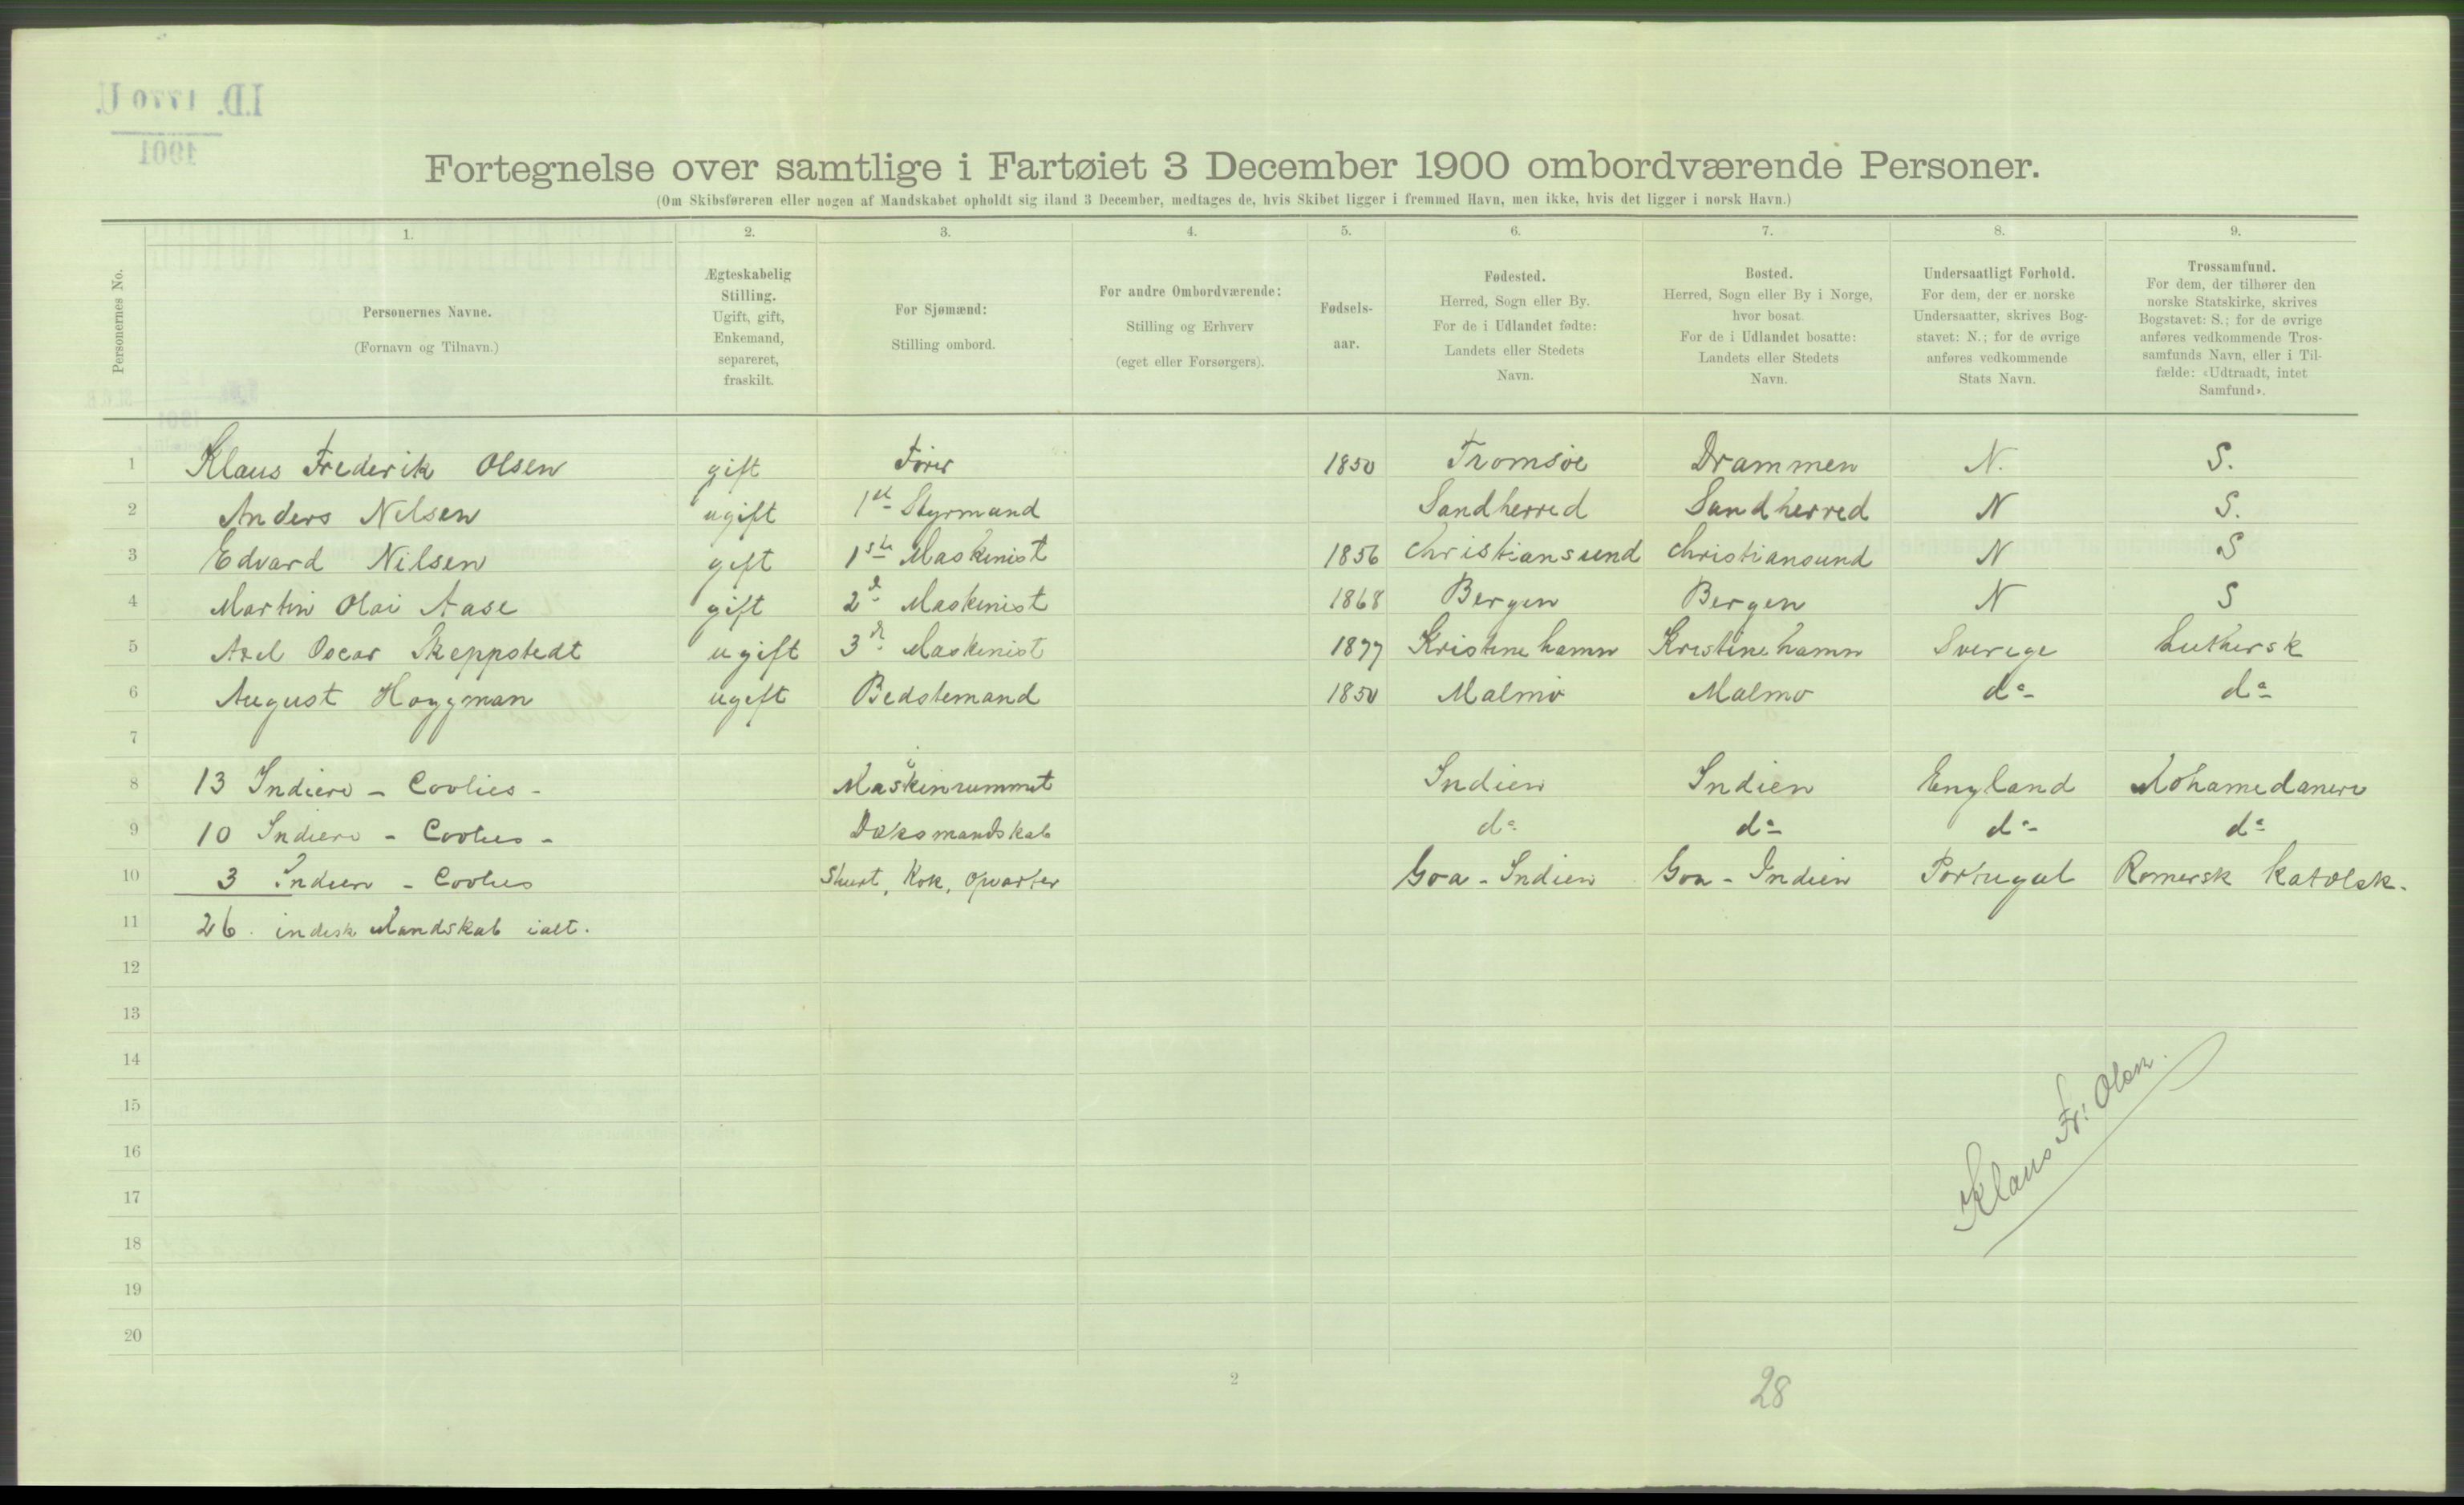 I.D. 1770 U.
1901
Fortegnelse over samtlige i Fartøiet 3 December 1900 ombordværende Personer.
(Om Skibsføreren eller nogen af Mandskabet opholdt sig iland 3 December, medtages de, hvis Skibet ligger i fremmed Havn, men ikke, hvis det ligger i norsk Havn.)
Personernes No.
1.
Personernes Navne.
(Fornavn og Tilnavn.)
2.
Ægteskabelig
Stilling.
Ugift, gift,
Enkemand,
separeret,
fraskilt.
3.
For Sjømænd:
Stilling ombord.
4.
For andre Ombordværende:
Stilling og Erhverv
(eget eller Forsørgers).
5.
Fødsels-
aar.
6.
Fødested.
Herred, Sogn eller By.
For de i Udlandet fødte:
Landets eller Stedets
Navn.
7.
Bosted.
Herred, Sogn eller By i Norge,
hvor bosat.
For de i Udlandet bosatte:
Landets eller Stedets
Navn.
8.
Undersaatligt Forhold.
For dem, der er norske
Undersaatter, skrives Bog-
stavet: N.; for de øvrige
anføres vedkommende
Stats Navn.
9.
Trossamfund.
For dem, der tilhører den
norske Statskirke, skrives
Bogstavet: S.; for de øvrige
anføres vedkommende Tros-
samfunds Navn, eller i Til-
fælde: «Udtraadt, intet
Samfund».
1 Klaus Frederik Olsen gift Fører 1850 Tromsøe Drammen N. S.
2 Anders Nilsen ugift 1st Styrmand Sandherred Sandherred N S.
3 Edvard Nilsen gift 1ste Maskinist 1856 Christiansund Christiansund N S
4 Martin Olai Aase gift 2d Maskinist 1868 Bergen Bergen N S
5 Axel Oscar Skeppstedt ugift 3d Maskinist 1877 Kristinehamn Kristinehamn Sverige Luthersk
6 August Haggman ugift Bedstemand 1850 Malmö Malmo do do
7
8 13 Indiere - Coolies - i Maskinrummet Indien Indien England Mohamedanere
9 10 Indiere - Coolies - Dæksmandskab do do do do
10 3 Indiere - Coolies Stuert, Kok, Opvarter Goa - Indien Goa - Indien Portugal Romersk Katolsk.
11 26 indisk Mandskab ialt.
12
13
14
15
16
17
18
19
20
Klaus Fr: Olsen.
2
28